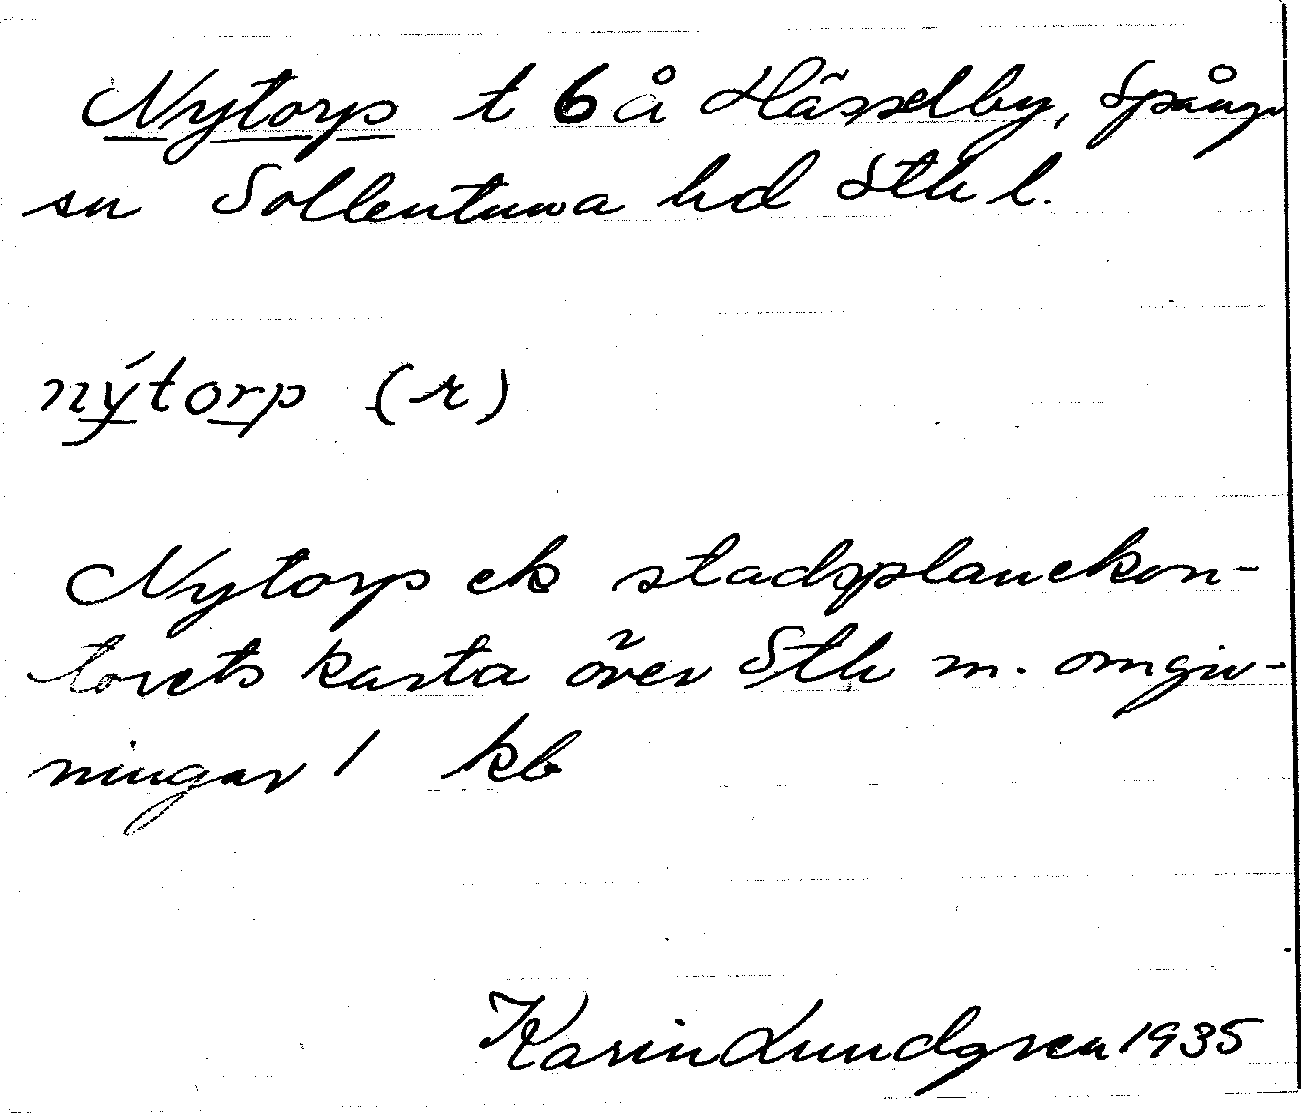 Nytorp t 6 å Hässelby, Spånga
sn Sollentuna hd Sth l.
nýtorp (r)
Nytorp ek stadsplanekon-
torets karta över Sth m. omgiv-
ningar 1 kb
Karin Lundgren 1935